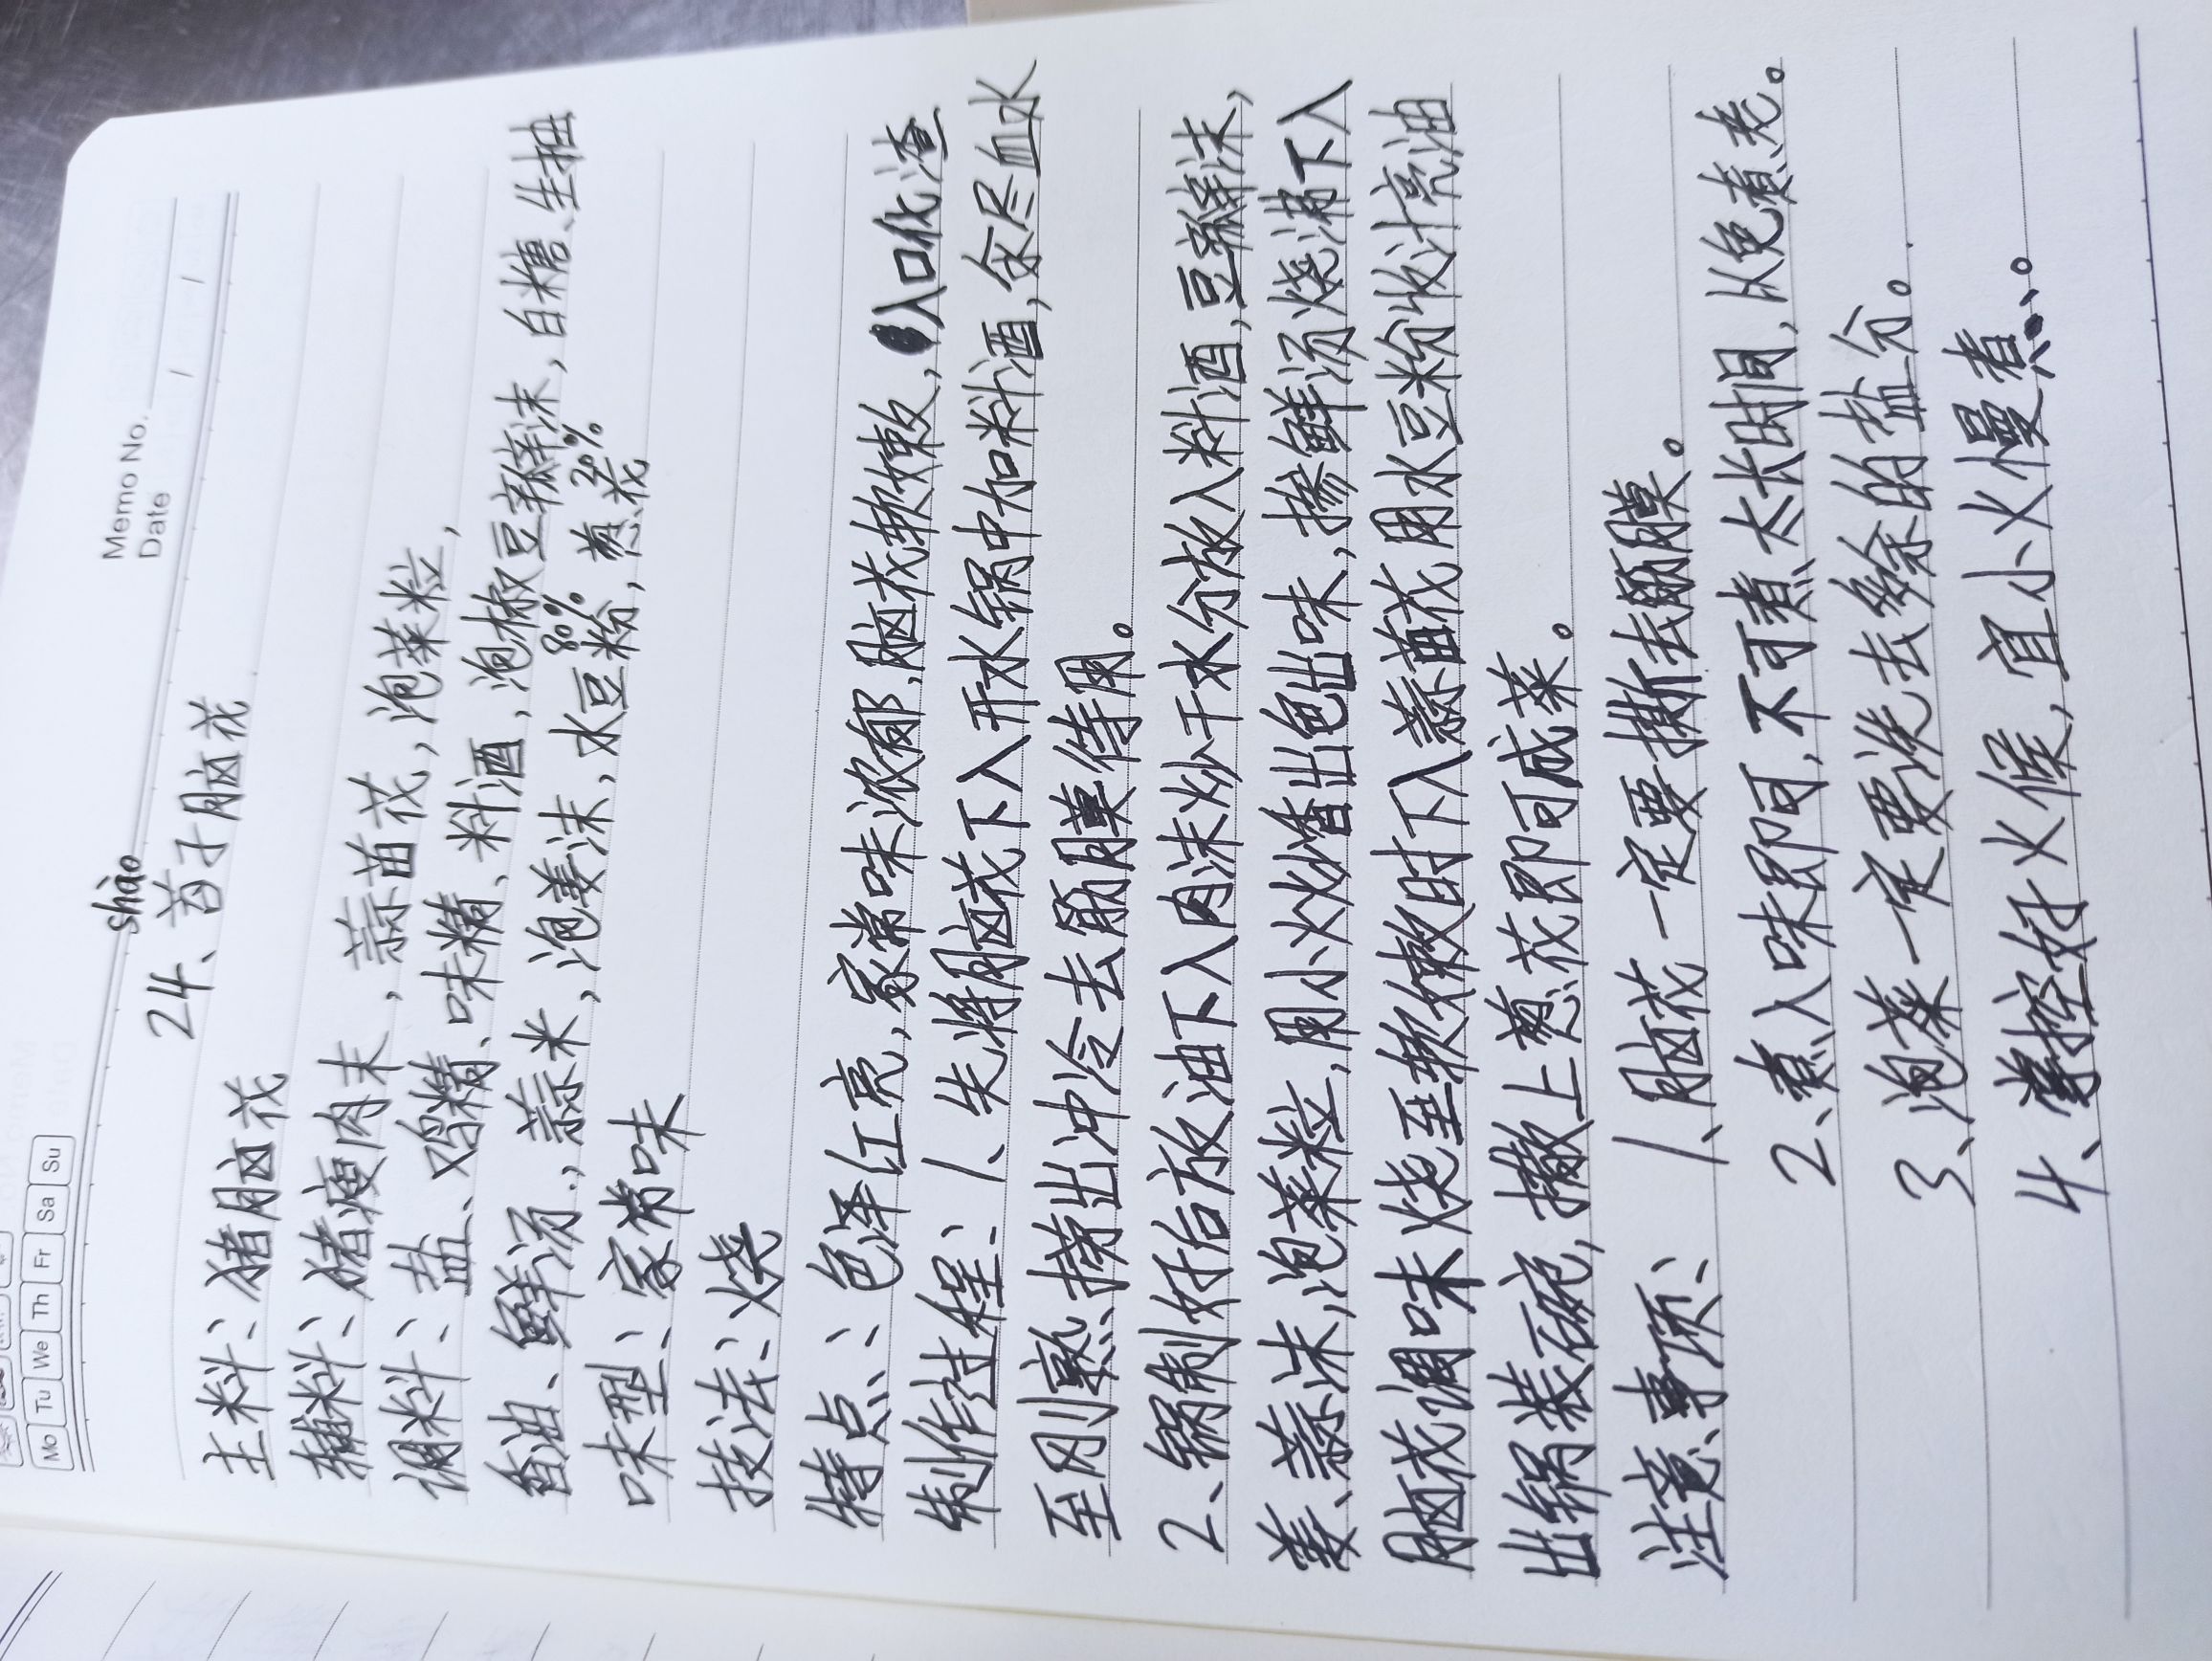 Memo No.
Date / /
Mo Tu We Th Fr Sa Su
shào
24、苕子脑花
主料：猪脑花
辅料：猪瘦肉末，蒜苗花，泡菜粒，
调料：盐、鸡精、味精、料酒，泡椒豆瓣沫，白糖、生抽
80% 20%
香油、鲜汤，蒜米，泡姜沫，水豆粉，葱花
味型：家常味
技法：烧
特点：色泽红亮，家常味浓郁，脑花软嫩，入口化渣
制作过程：1、先将脑花下入开水锅中加料酒，氽尽血水
至刚熟捞出冲冷去筋膜待用。
2、锅制好后放油下入肉沫炒干水分放入料酒，豆瓣沫，
姜、蒜沫，泡菜粒，用小火炒香出色出味，掺鲜汤烧沸下入
脑花调味烧至软嫩时下入蒜苗花用水豆粉收汁亮油
出锅装碗，撒上葱花即可成菜。
注意事项： 1、脑花一定要撕去筋膜。
2、煮入味即可，不可煮太长时间，以免煮老。
3、泡菜一定要洗去多余的盐分。
4、掌控好火候，宜小火慢煮。